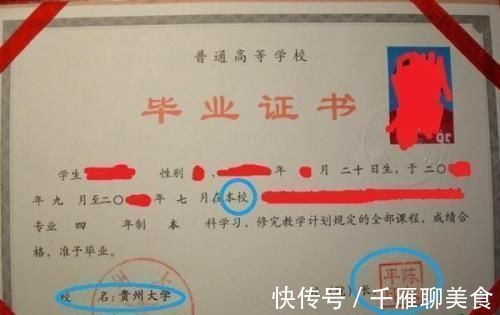 普通高等学校
毕业证书
学生 性别 , 年 月二十日生,于二〇
年九月至二〇 年七月在本校
专业 四 年制 本 科学习,修完教学计划规定的全部课程,成绩合
格,准予毕业。
校 名:贵州大学
长
平陈
快传号/千雁聊美食